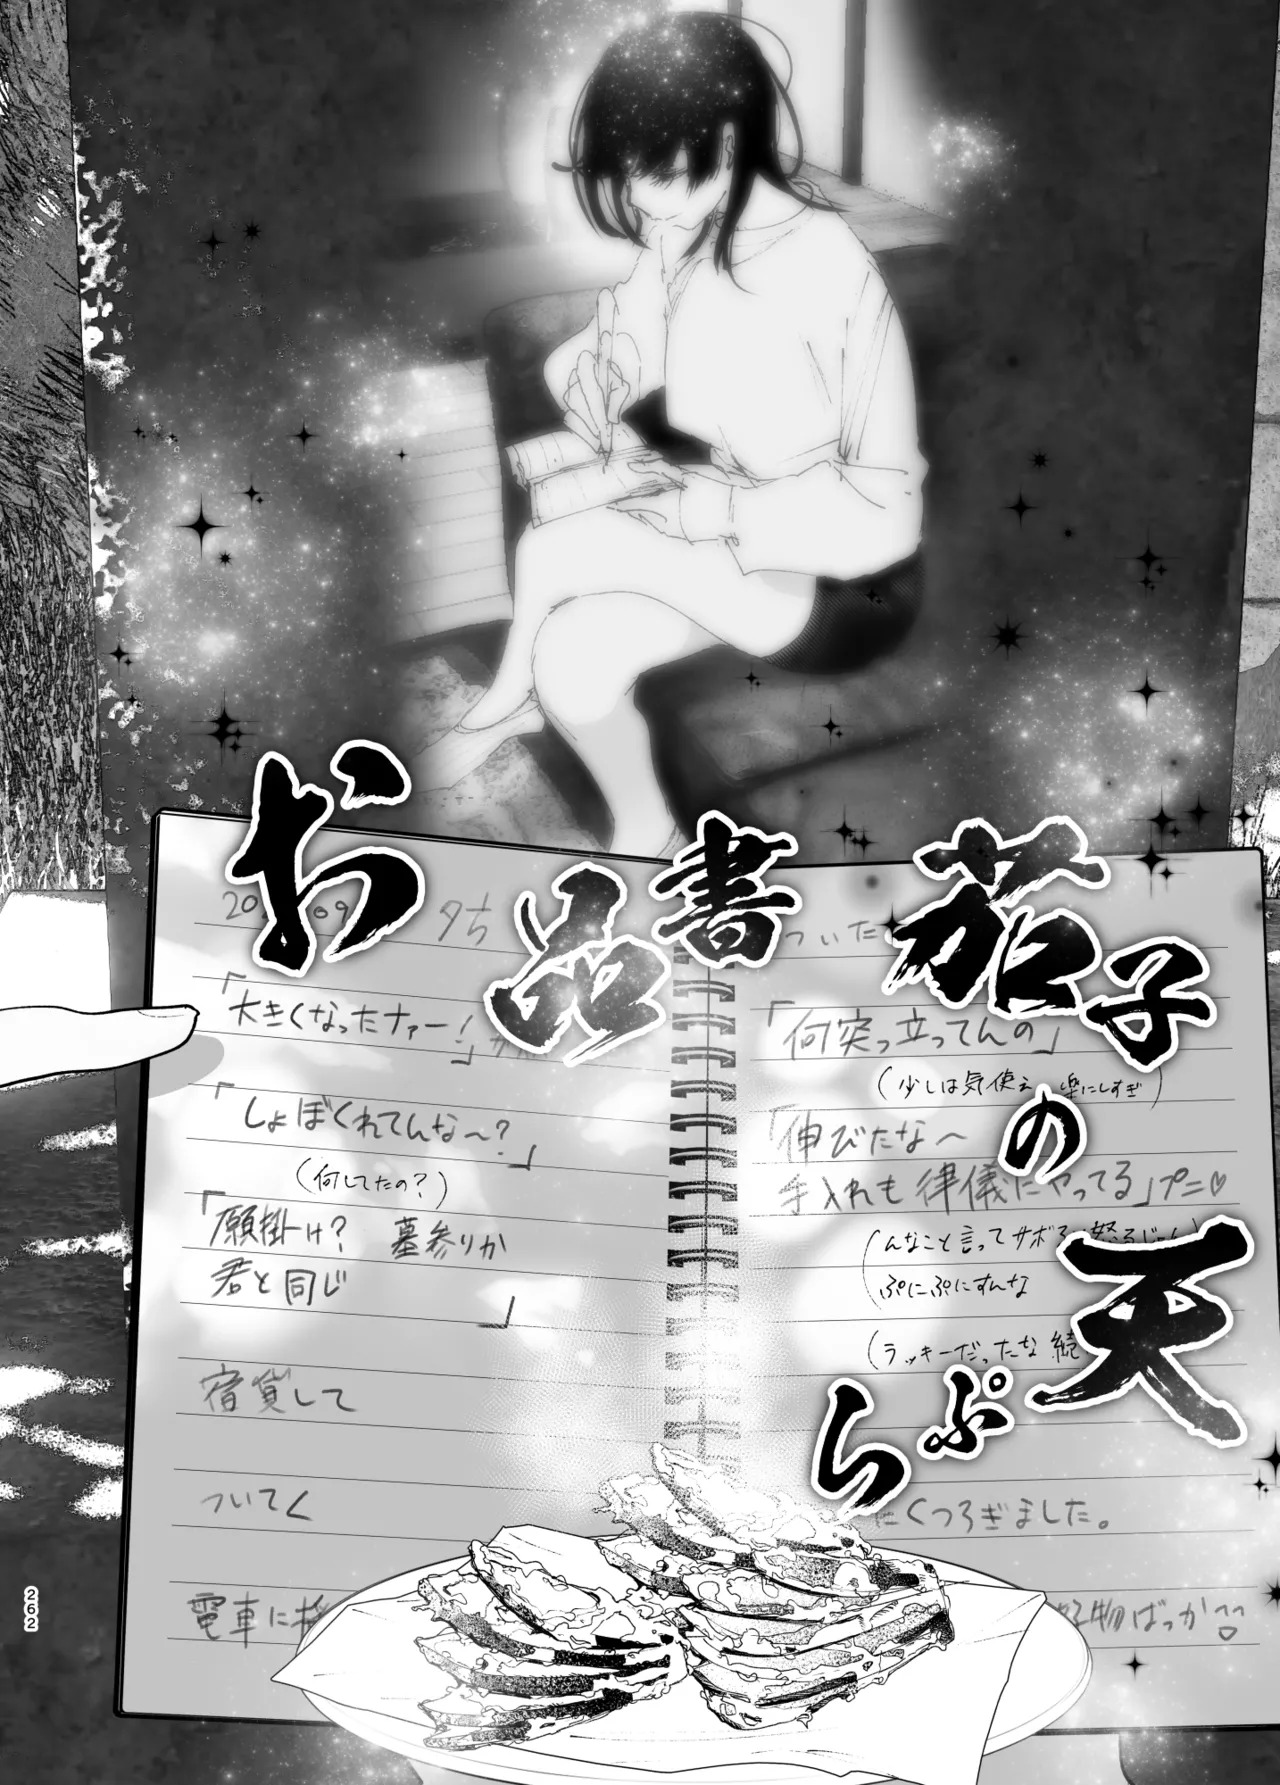 お品書
茄子の天ぷら
20
09
夕方
「大きくなったナァー!」
「しょぼくれてんな〜?」
(何してたの?)
「願掛け? 墓参りか
君と同じ
」
宿貸して
ついてく
電車に
ついた
「何突っ立ってんの」
(少しは気使え 楽にしすぎ)
「伸びたな〜
手入れも律儀にやってる」プニ♡
(んなこと言ってサボ
ぷにぷにすんな
(ラッキーだったな 続
にくつろぎました。
好物ばっか
262